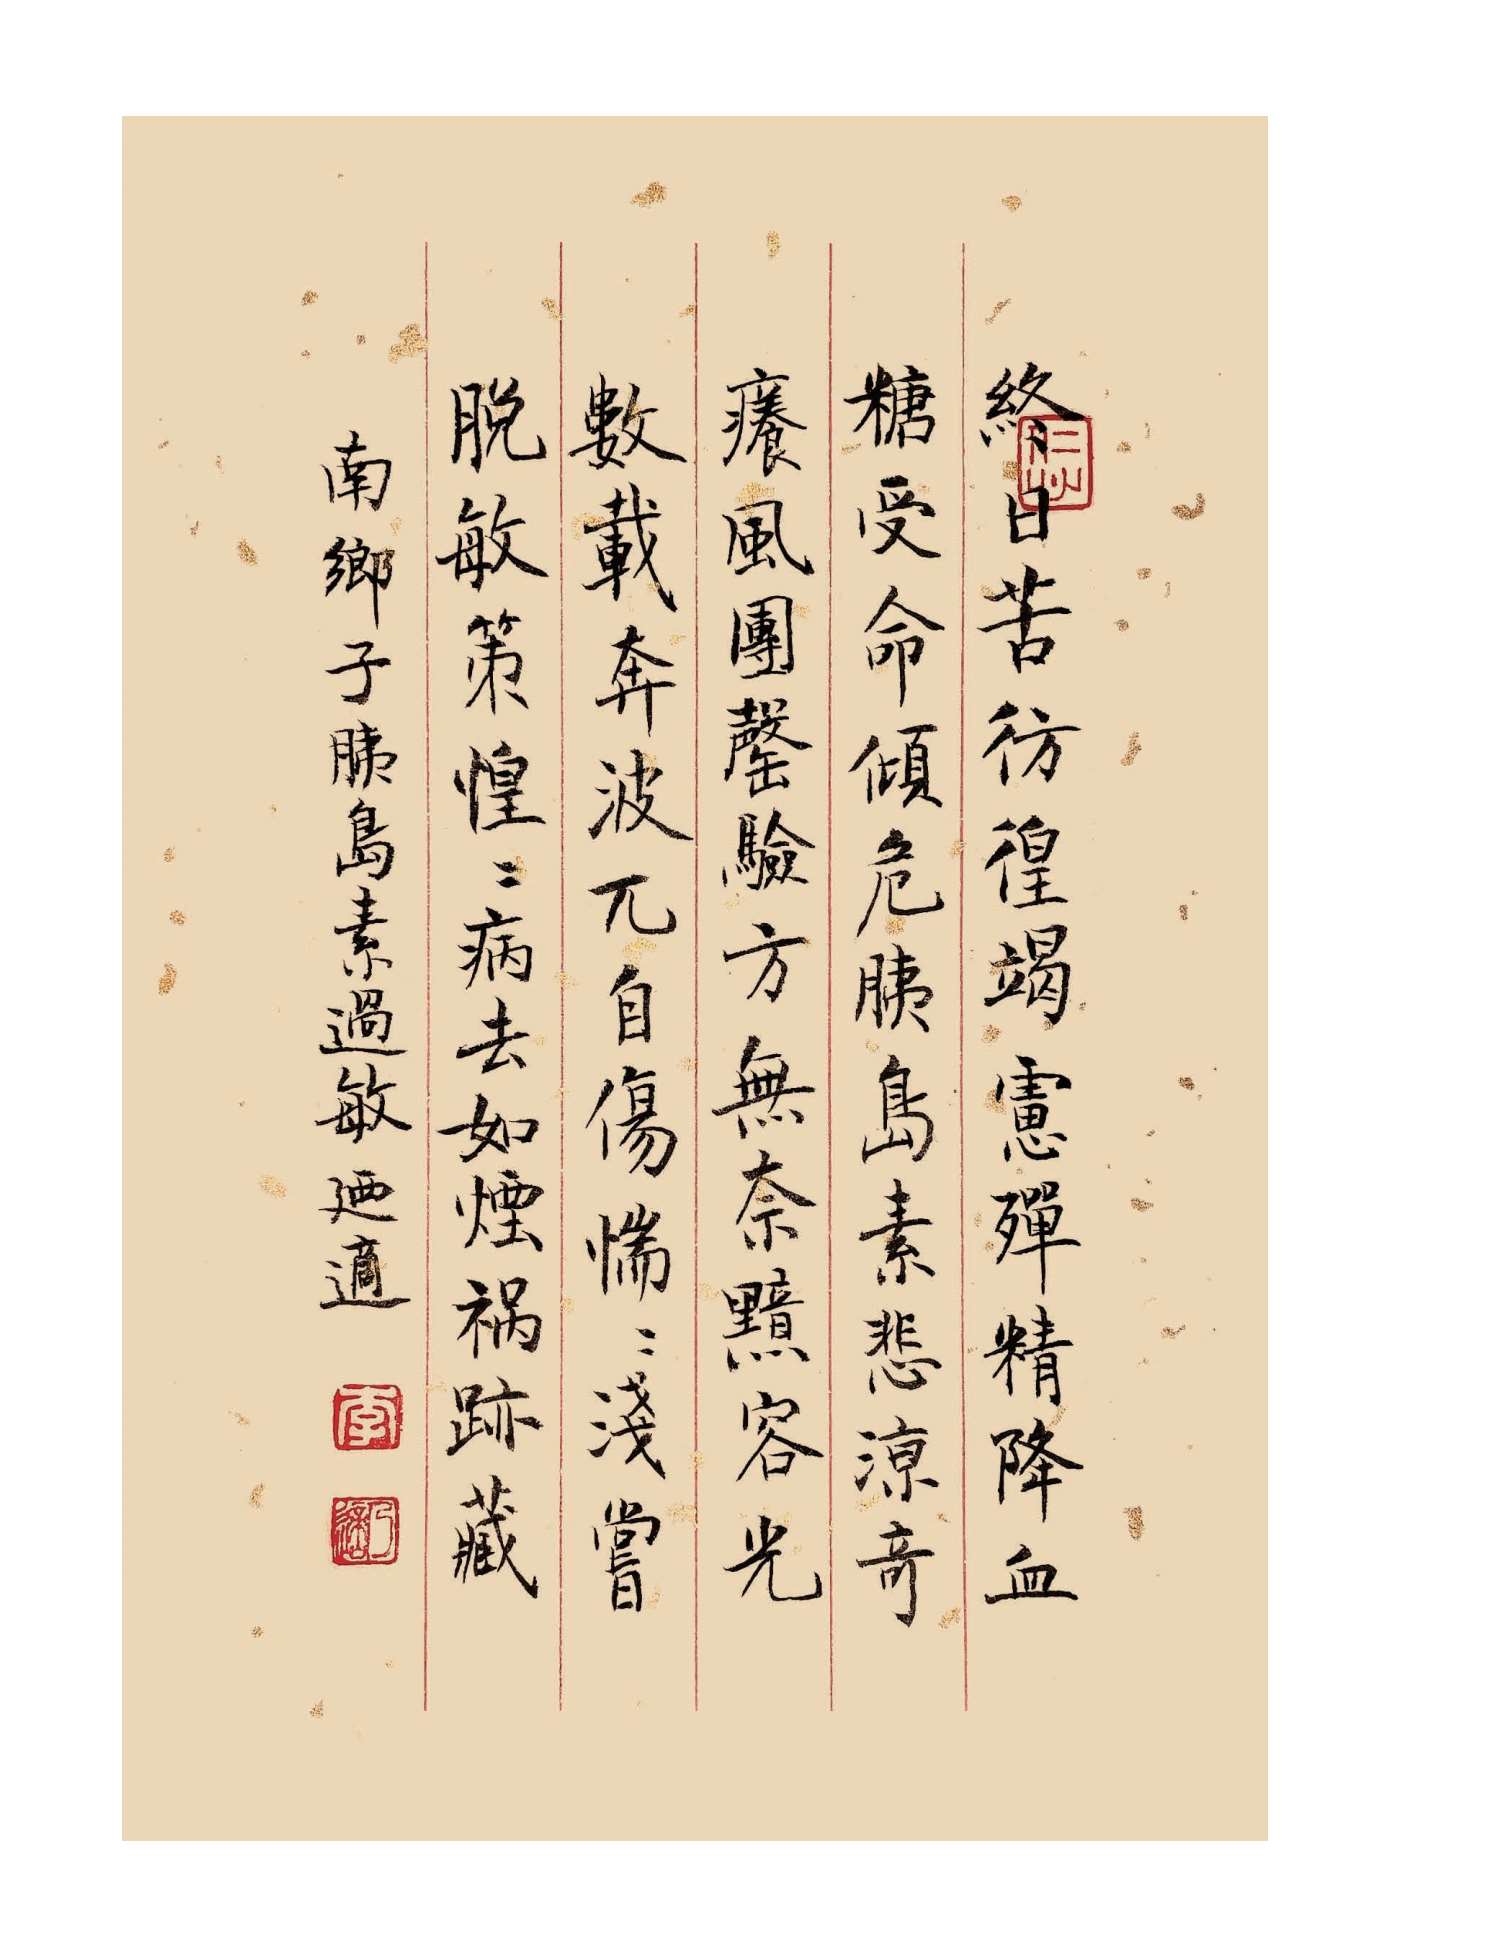 終日苦彷徨竭慮殫精降血
糖受命傾危胰島素悲涼奇
癢風團罄驗方無奈黯容光
數載奔波兀自傷惴〻淺嘗
脫敏策惶〻病去如煙祸跡藏
南鄉子胰島素過敏廼適